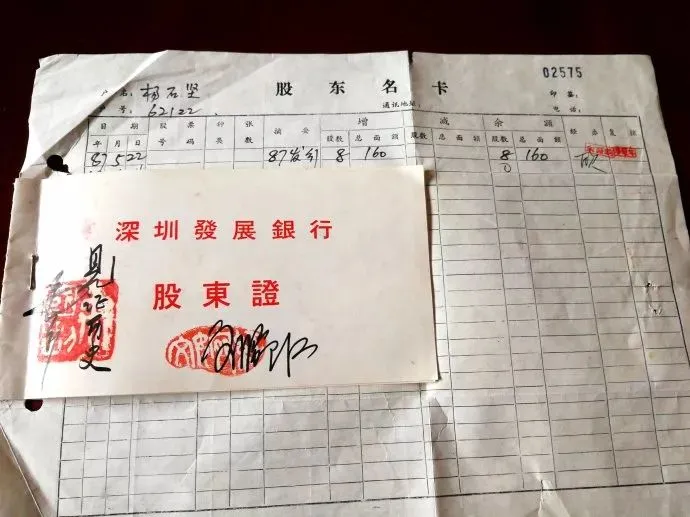 02575
户名: 杨石坚
股东名卡
印鉴:
号: 62122
通讯地址:
电话:
日期 股票 种 张 摘要 增 减 余额 经办 复核
年 月 日 号码 类 数 股数 总面额 股数 总面额 股数 总面额
87 5 22 87发行 8 160 8 160
深圳發展銀行
股東證
見证历史